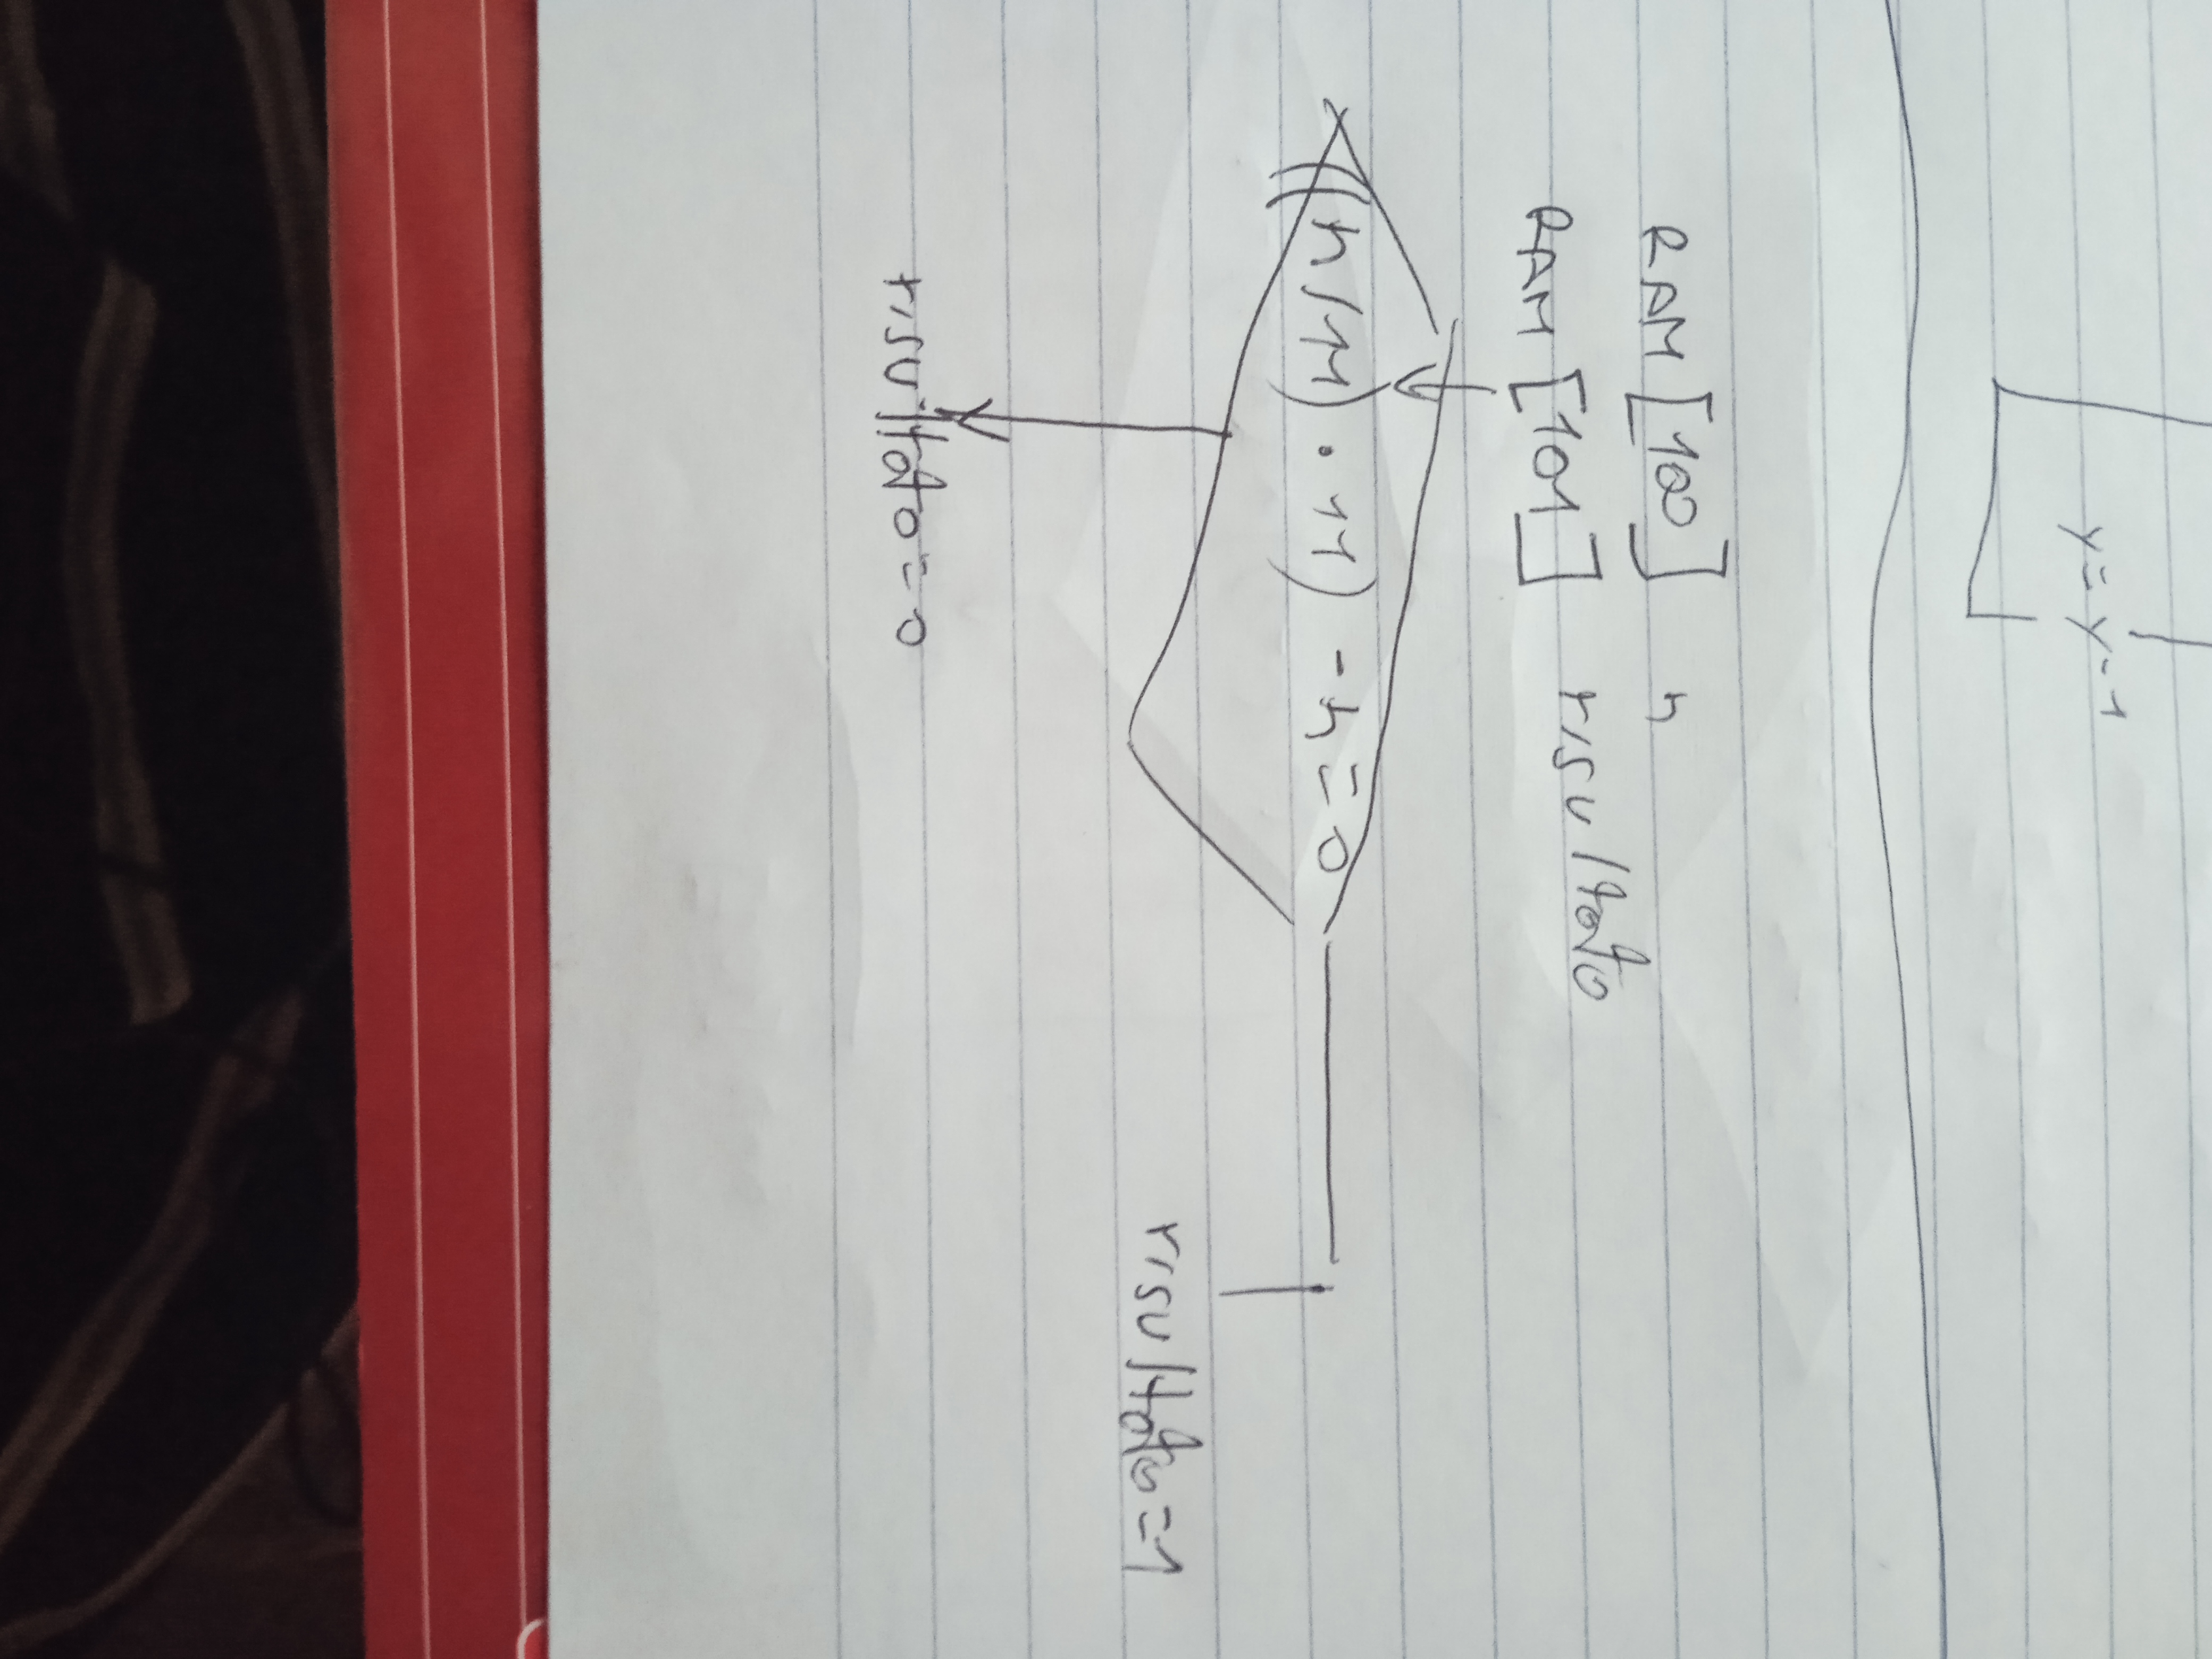 y=y-1
RAM [100] n
RAM [101] risultato
((n/11) · 11) - n = 0
risultato=1
risultato=0